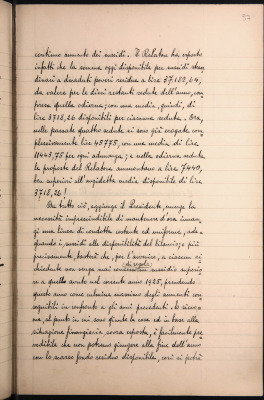 continuo aumento dei sussidi. Il Relatore ha esposto
infatti che la somma oggi disponibile per sussidi straor
dinari a decaduti poveri residua a lire 37.182,64,
da valere per le dieci restanti sedute dell'anno, com
presa quella odierna; con una media, quindi, di
lire 3718,26 disponibili per ciascuna seduta. Ora,
nelle passate quattro sedute si sono già erogate com
plessivamente lire 45775, con una media di lire
11443,75 per ogni adunanza; e nella odierna seduta
le proposte del Relatore ammontano a lire 7440,
ben superiori all'anzidetta media disponibile di lire
3718,26!
Da tutto ciò, aggiunge il Presidente, emerge la
necessità imprescindibile di mantenere d'ora innan
zi una linea di condotta costante ed uniforme, ade
guando i sussidi alle disponibilità del bilancio; e più
precisamente, basterà che, per l'avvenire, a ciascun ri
chiedente non venga mai di regola sussidio superio
re a quello avuto nel corrente anno 1925, prendendo
questo anno come culmine massimo degli aumenti con
seguibili in confronto a gli anni precedenti. Se sicco
me, al punto in cui sono giunte le cose ed in base alla
situazione finanziaria sovra esposta, è facilmente pre
vedibile che non potremo giungere alla fine dell'anno
con lo scarso fondo residuo disponibile, così si potrà